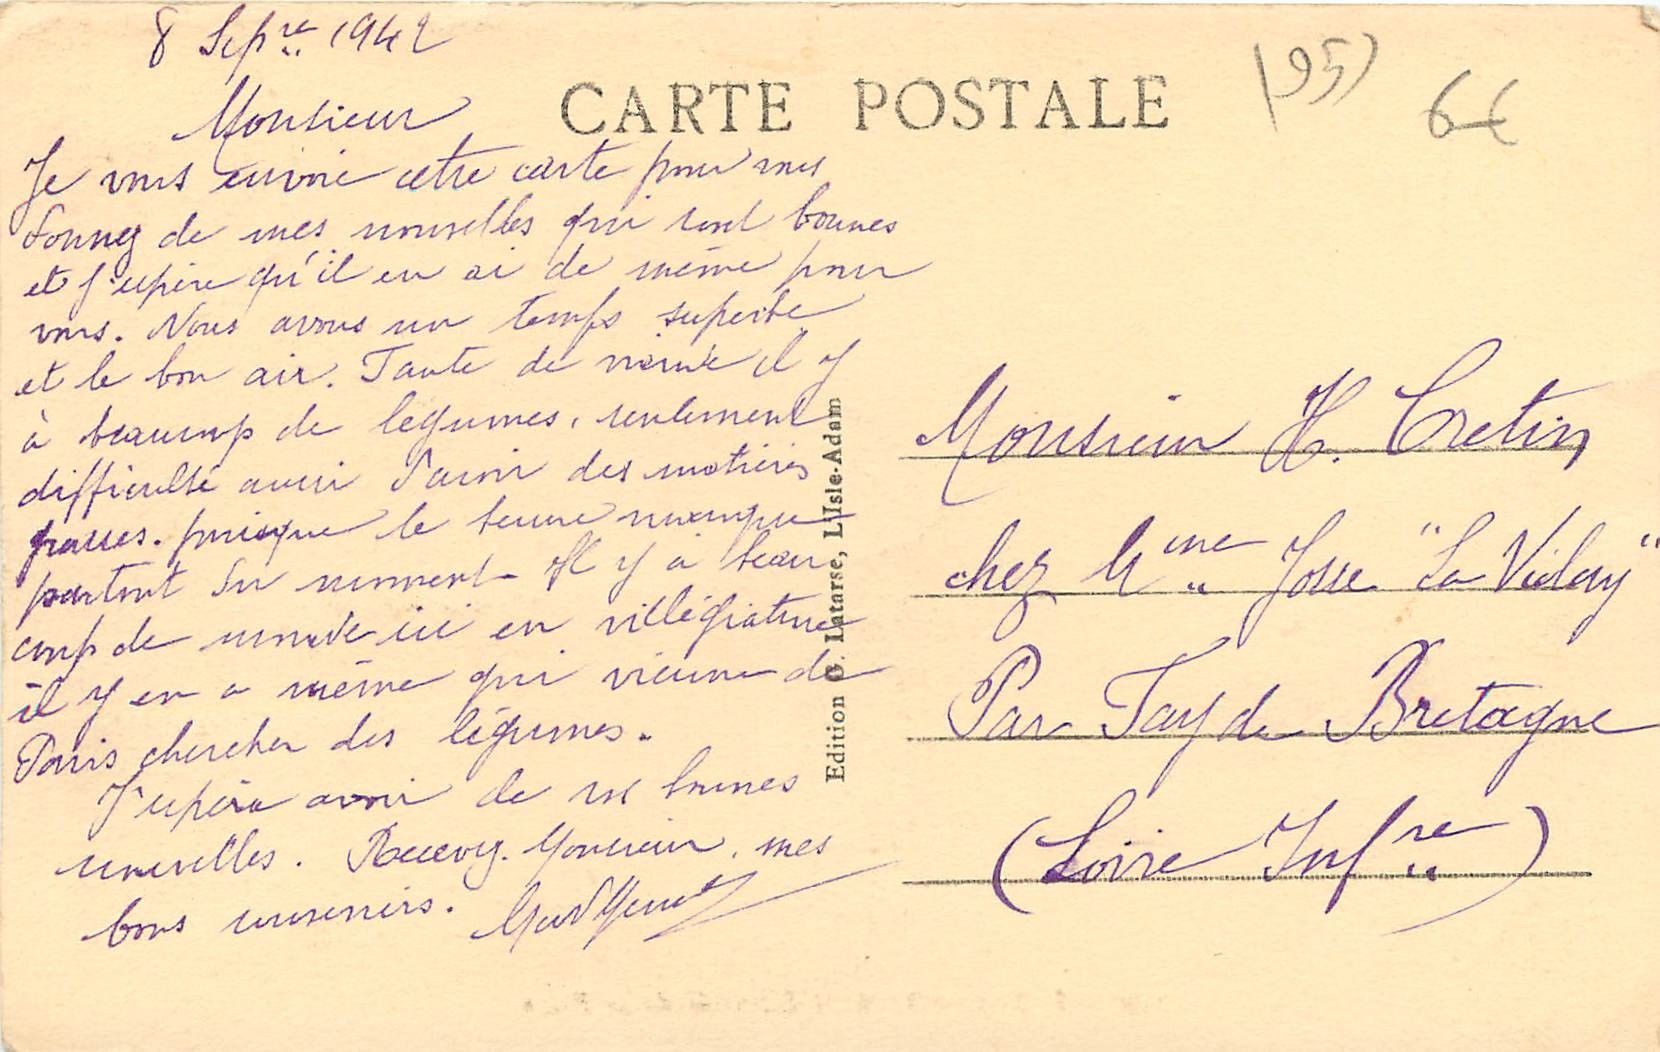 8 Sepre 1942
Monsieur
Je vous envoie cette carte pour vous
donnez de mes nouvelles qui sont bonnes
et j'espère qu'il en ai de même pour
vous. Nous avons un temps superbe
et le bon air. Tante de il y
à beaucoup de légumes, seulement
difficulté aussi d'avoir des matières
grasses. puisque le beurre manque
partout en moment. Il y à beau
coup de monde ici en villégiature
il y en a même qui vienne de
Paris chercher des légumes.
J'espère avoir de vos bonnes
nouvelles. Recevez. Monsieur, mes
bons souvenirs.
CARTE POSTALE
(95)
6€
Edition G. Latarse, L'Isle-Adam
Monsieur H. Cretin
chez Mme Josse "La Violay"
Par Fay de Bretagne
(Loire Infre)